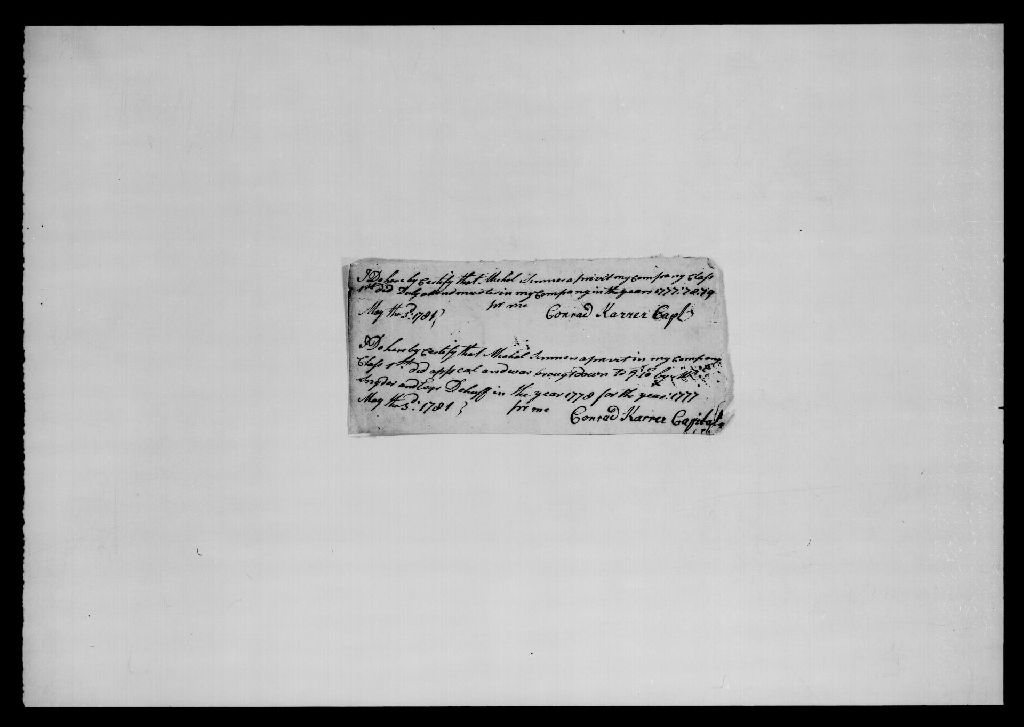 I Do here by Certify that Mechel Immers a privit my Company Class
1st did Duty at in my Company in the years 1777: 78: 79
May the 3d: 1781 } pr me Conrad Karrer Capt
I Do here by Certify that Mechel Immers a pravit in my Company
Class 1st did appeal and was brought down to by
Snyder and Dehuff in the year 1778 for the year: 1777
May the 3d: 1781 } pr me Conrad Karrer Capitat